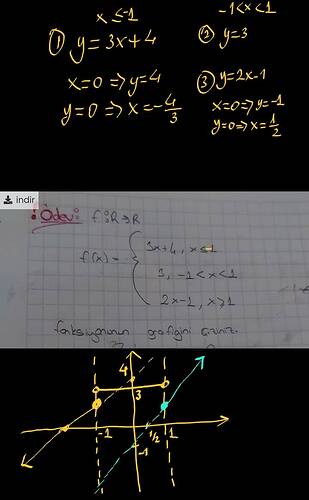 x≤-1
-1<x<1
① y=3x+4
② y=3
x=0 ⇒ y=4
y=0 ⇒ x=-4/3
③ y=2x-1
x=0 ⇒ y=-1
y=0 ⇒ x=1/2
indir
Ödev: f:R→R
f(x)=
3x+4, x≤-1
3, -1<x<1
2x-1, x≥1
fonksiyonunun grafiğini çiziniz.
4
3
-1
1/2
1
-1